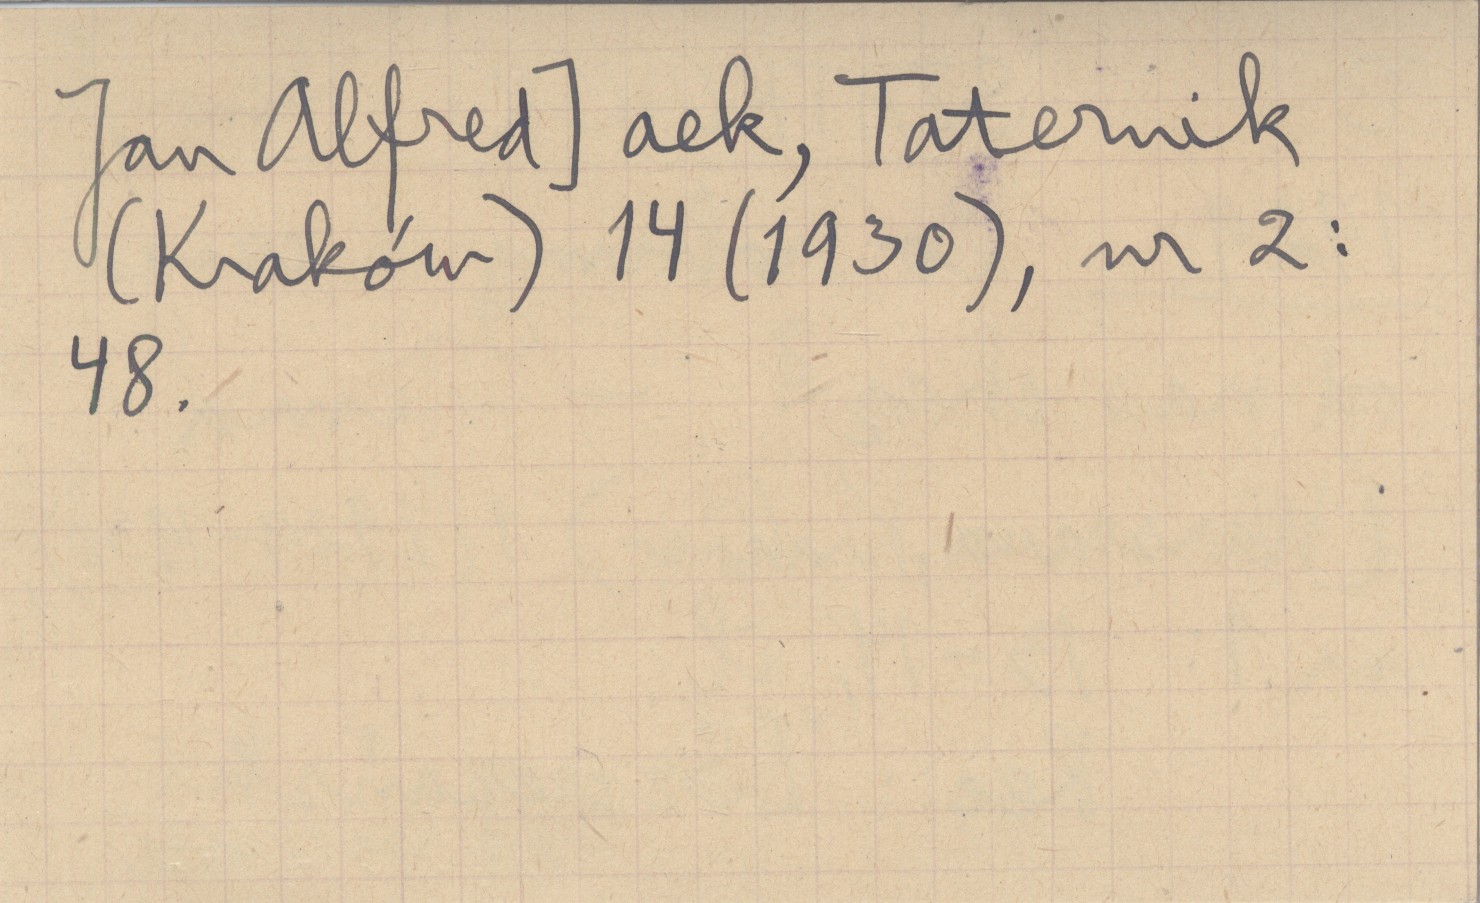 Jan Alfred] aek, Taternik
(Kraków) 14 (1930), nr 2:
48.